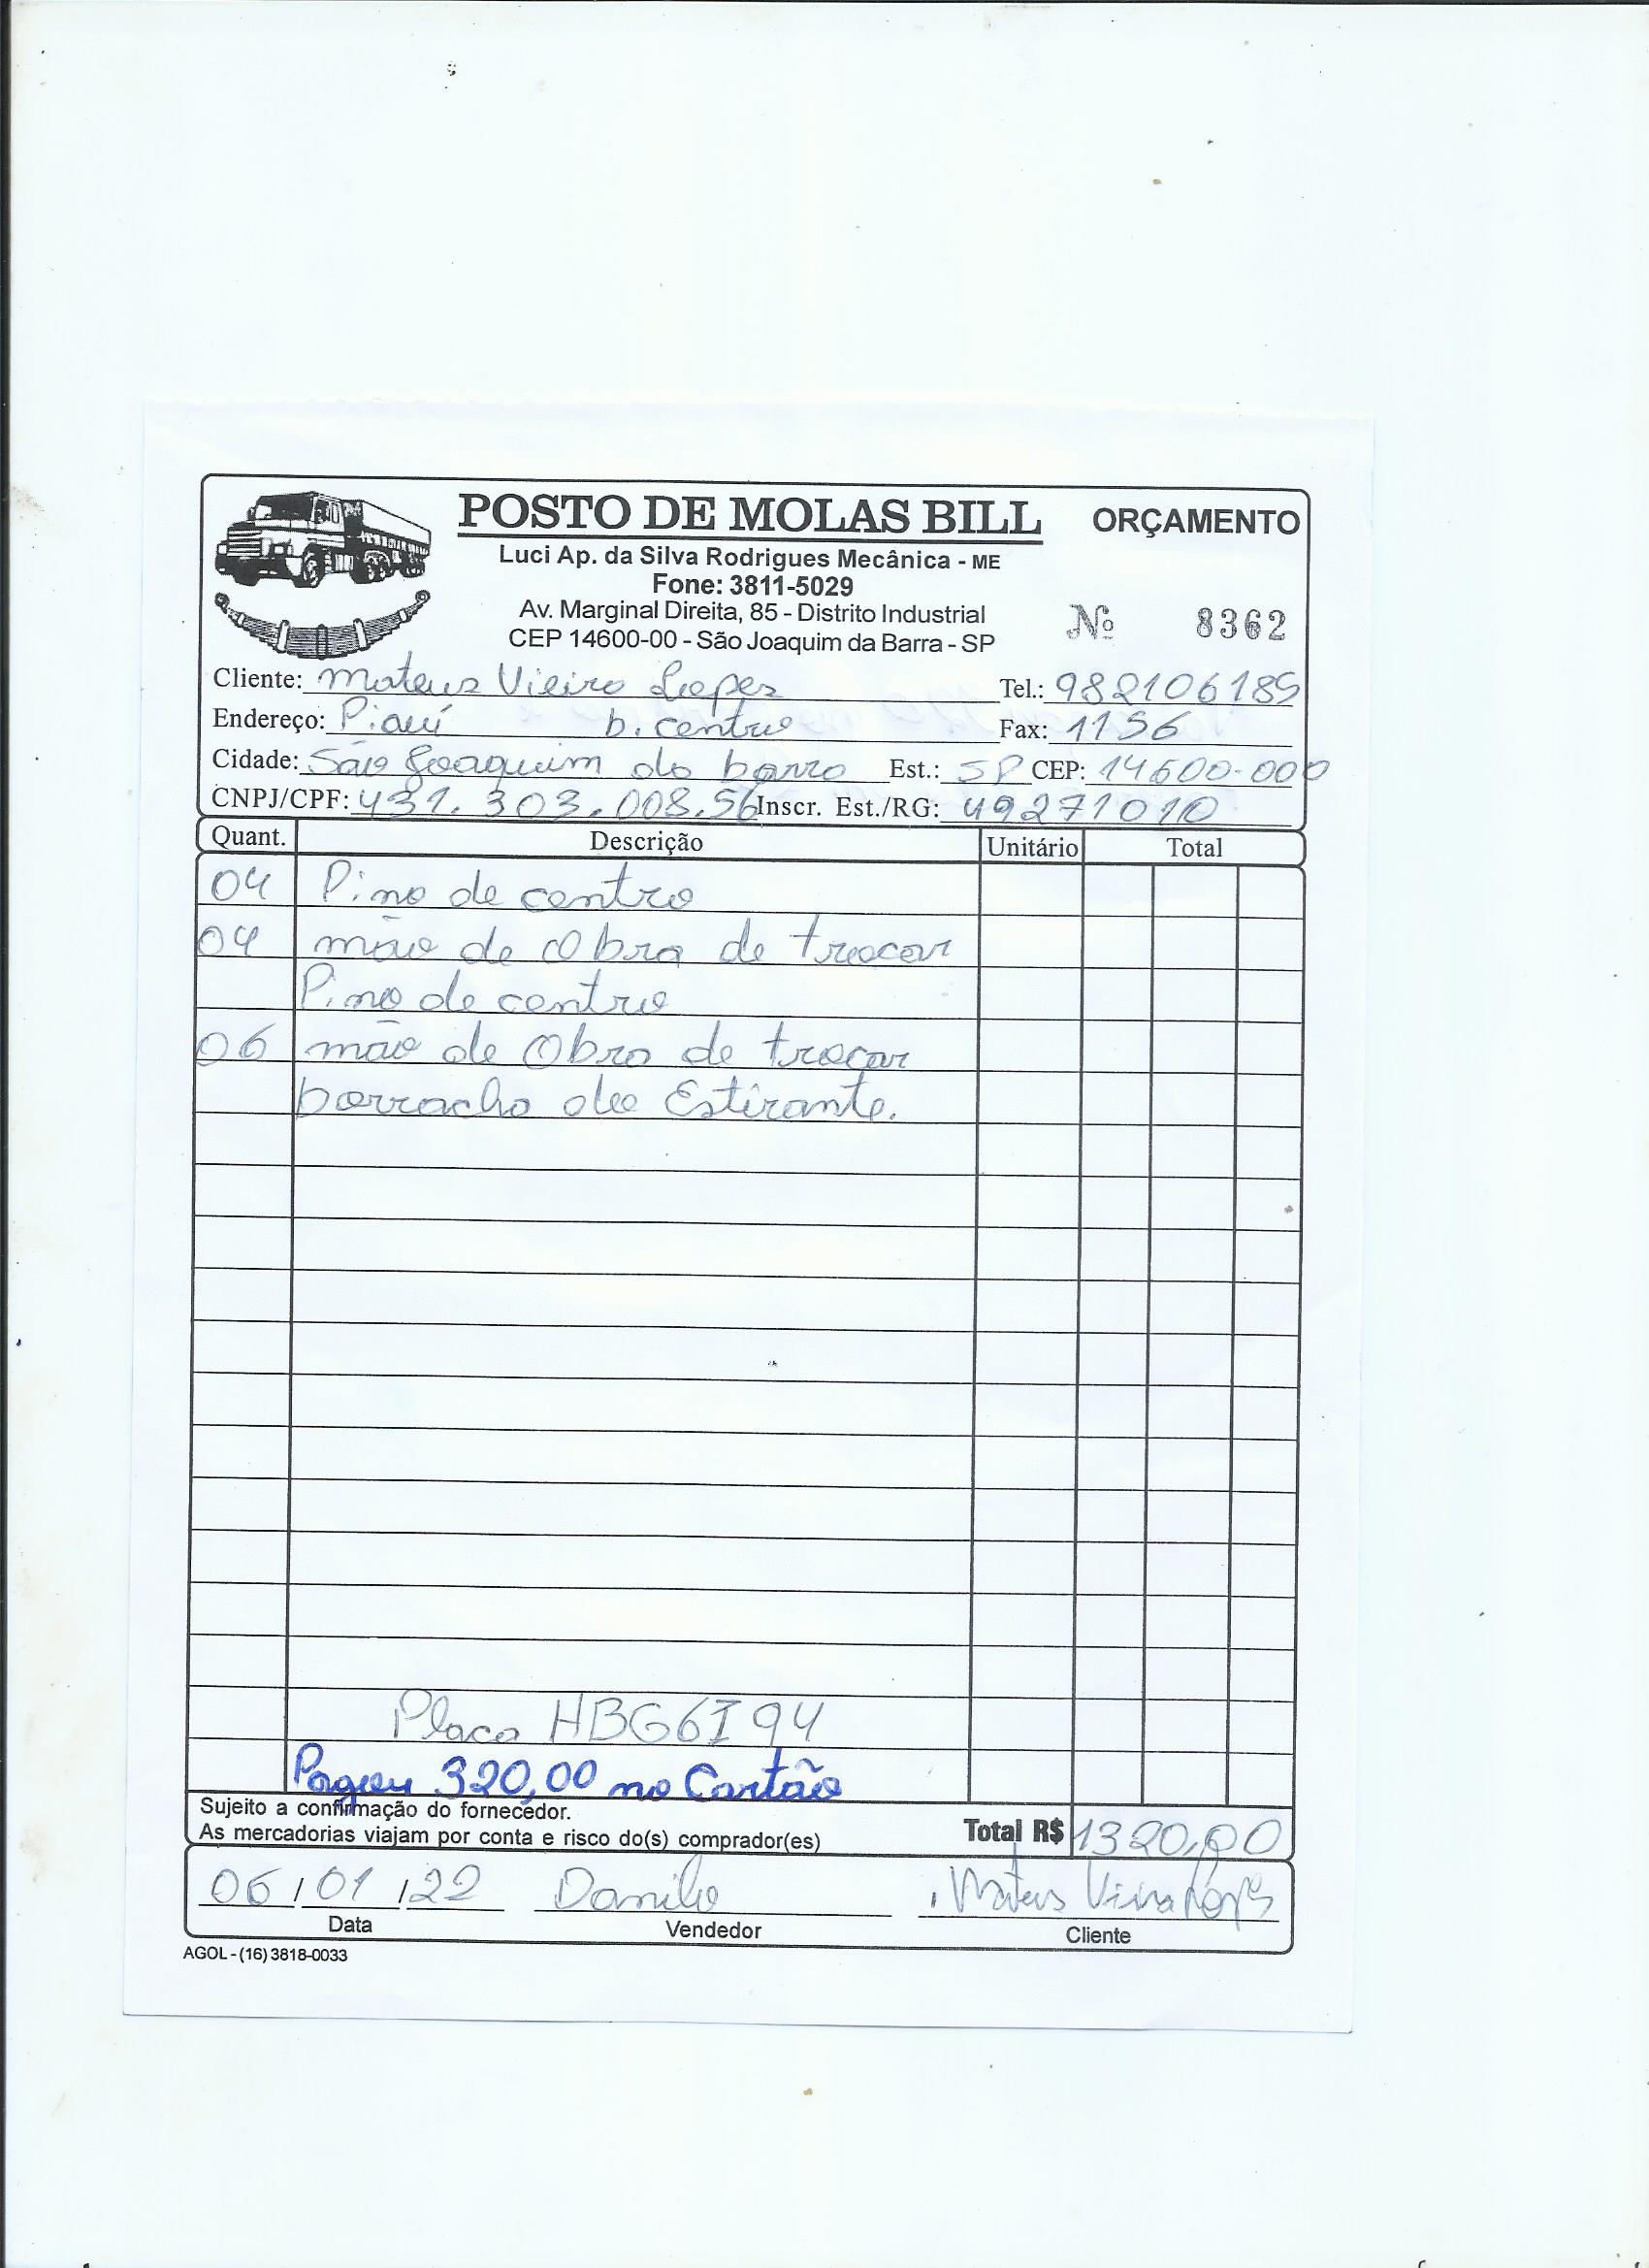 POSTO DE MOLAS BILL ORÇAMENTO
Luci Ap. da Silva Rodrigues Mecânica - ME
Fone: 3811-5029
Av. Marginal Direita, 85 - Distrito Industrial
CEP 14600-00 - São Joaquim da Barra - SP
Nº 8362
Cliente: Mateus Vieira Lopes Tel.: 982106189
Endereço: Piauí b. centro Fax: 1156
Cidade: São Joaquim da barra Est.: SP CEP: 14600-000
CNPJ/CPF: 431.303.008.56 Inscr. Est./RG: 49271010
Quant. Descrição Unitário Total
04 Pino de centro
04 mão de Obra de trocar
Pino de centro
06 mão de Obra de trocar
borracha de Estirante.
Placa HBG6I94
Pagou 320,00 no Cartão
Sujeito a confirmação do fornecedor.
As mercadorias viajam por conta e risco do(s) comprador(es)
Total R$ 1320,00
06/01/22 Danilo Mateus Vieira Lopes
Data Vendedor Cliente
AGOL - (16) 3818-0033